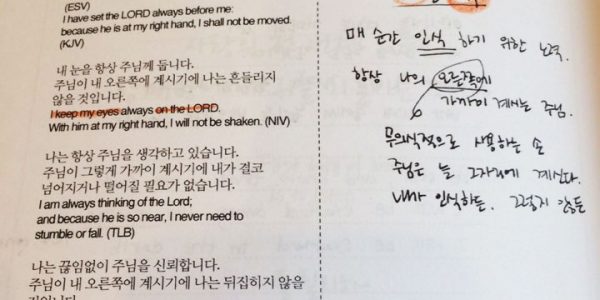 (ESV)
I have set the LORD always before me:
because he is at my right hand, I shall not be moved.
(KJV)
내 눈을 항상 주님께 둡니다.
주님이 내 오른쪽에 계시기에 나는 흔들리지
않을 것입니다.
I keep my eyes always on the LORD.
With him at my right hand, I will not be shaken. (NIV)
나는 항상 주님을 생각하고 있습니다.
주님이 그렇게 가까이 계시기에 내가 결코
넘어지거나 떨어질 필요가 없습니다.
I am always thinking of the Lord;
and because he is so near, I never need to
stumble or fall. (TLB)
나는 끊임없이 주님을 신뢰합니다.
주님이 내 오른쪽에 계시기에 나는 뒤집히지 않을
것입니다.
매 순간 인식 하기 위한 노력.
항상 나의 오른쪽에
가까이 계시는 주님.
무의식적으로 사용하는 손
주님은 늘 그자리에 계신다.
내가 인식하든. 그렇지 않든